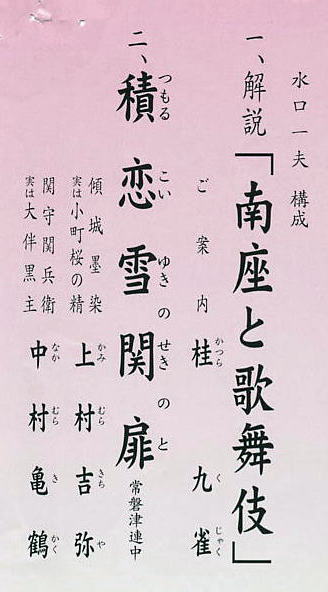 水口一夫 構成
一、解説「南座と歌舞伎」
ご案内 桂 九雀
かつら く じゃく
二、積恋雪関扉 常磐津連中
つもる こい ゆきの せきの と
傾城墨染
実は小町桜の精
上村吉弥
かみ むら きち や
関守関兵衛
実は大伴黒主
中村亀鶴
なか むら き かく